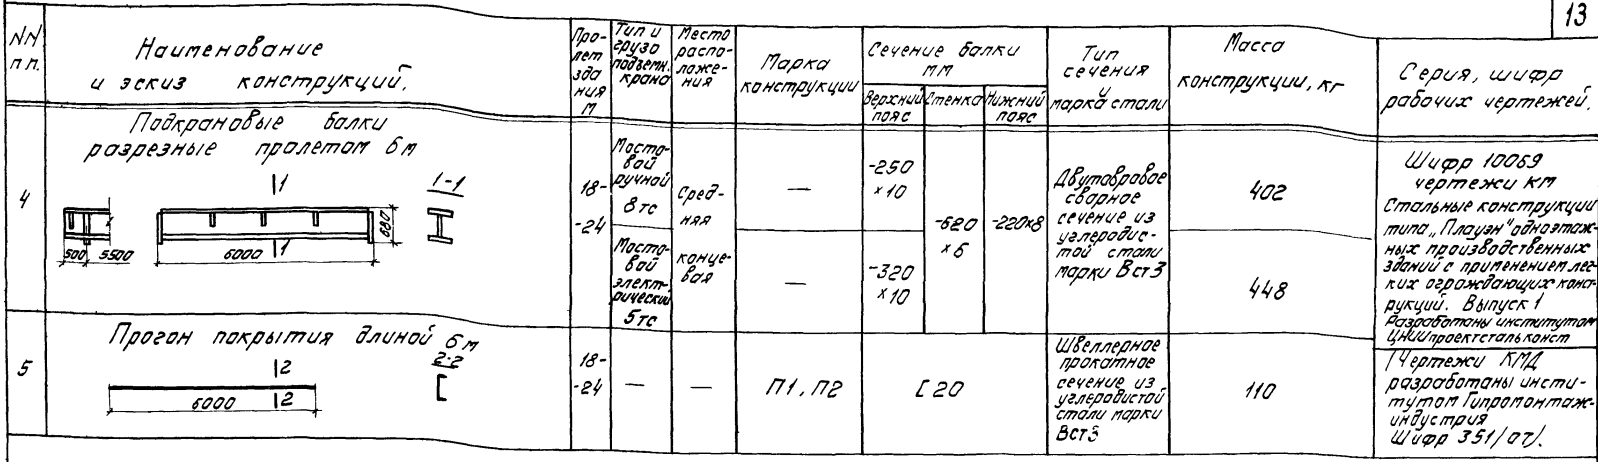 13
NN
п.п.
Наименование
и эскиз конструкций.
Про-
лет
зда
ния
м
Тип и
грузо
подъемн.
крана
Место
распо-
ложе-
ния
Марка
конструкции
Сечение балки
мм
Верхний
пояс
Стенка
Нижний
пояс
Тип
сечения
и
марка стали
Масса
конструкции, кг
Серия, шифр
рабочих чертежей.
4
Подкрановые балки
разрезные пролетом 6м
1
1-1
680
500
5500
6000
1
18-
-24
Мосто-
вой
ручной
8тс
Мосто-
вой
элект-
рический
5тс
Сред-
няя
конце-
вая
—
—
-250
×10
-320
×10
-620
×6
-220×8
Двутавровое
сварное
сечение из
углеродис-
той стали
марки Вст3
402
448
Шифр 10069
чертежи КМ
Стальные конструкции
типа „Плауэн" одноэтаж-
ных производственных
зданий с применением лег-
ких ограждающих конст-
рукций. Выпуск 1
Разработаны институтом
ЦНИИпроектстальконст
5
Прогон покрытия длиной 6м
2
2-2
6000
2
18-
-24
—
—
П1, П2
[ 20
Швеллерное
прокатное
сечение из
углеродистой
стали марки
Вст3
110
(Чертежи КМД
разработаны инсти-
тутом Гипромонтаж-
индустрия
Шифр 351/от).